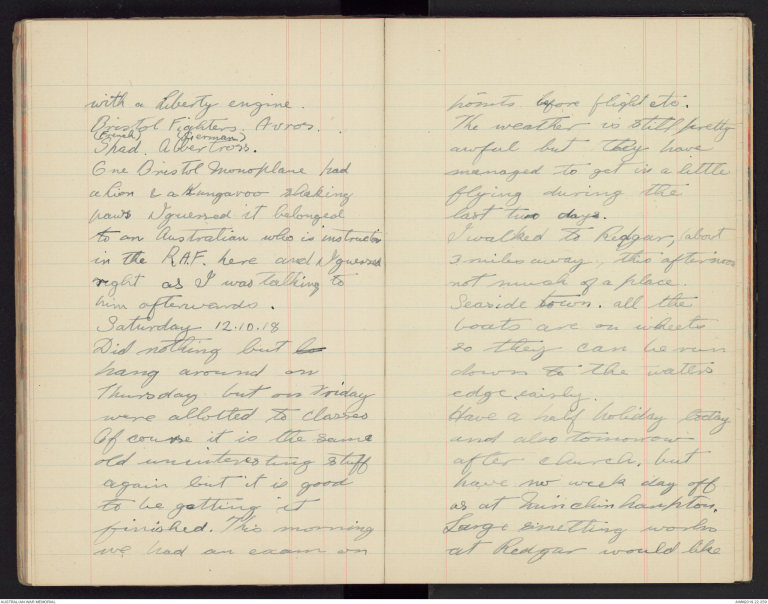 with a Liberty engine.
Bristol Fighters. Avros.
(French) (German)
Spad. Albertross.
One Bristol Monoplane had
a Lion & a Kangaroo shaking
paws I guessed it belonged
to an Australian who is instructor
in the R.A.F. here and I guessed
right as I was talking to
him afterwards.
Saturday 12.10.18
Did nothing but
hang around on
Thursday but on Friday
were allotted to classes
Of course it is the same
old uninteresting stuff
again but it is good
to be getting it
finished. This morning
we had an exam on
points before flight etc.
The weather is still pretty
awful but they have
managed to get in a little
flying during the
last two days.
I walked to Redgar, (about
3 miles away, this afternoon
not much of a place.
Seaside town. all the
boats are on wheels
so they can be run
down to the waters
edge easily.
Have a half holiday today
and also tomorrow
after church. but
have no week day off
as at Minchinhanpton.
Large smelting works
at Redgar would like
AUSTRALIAN WAR MEMORIAL